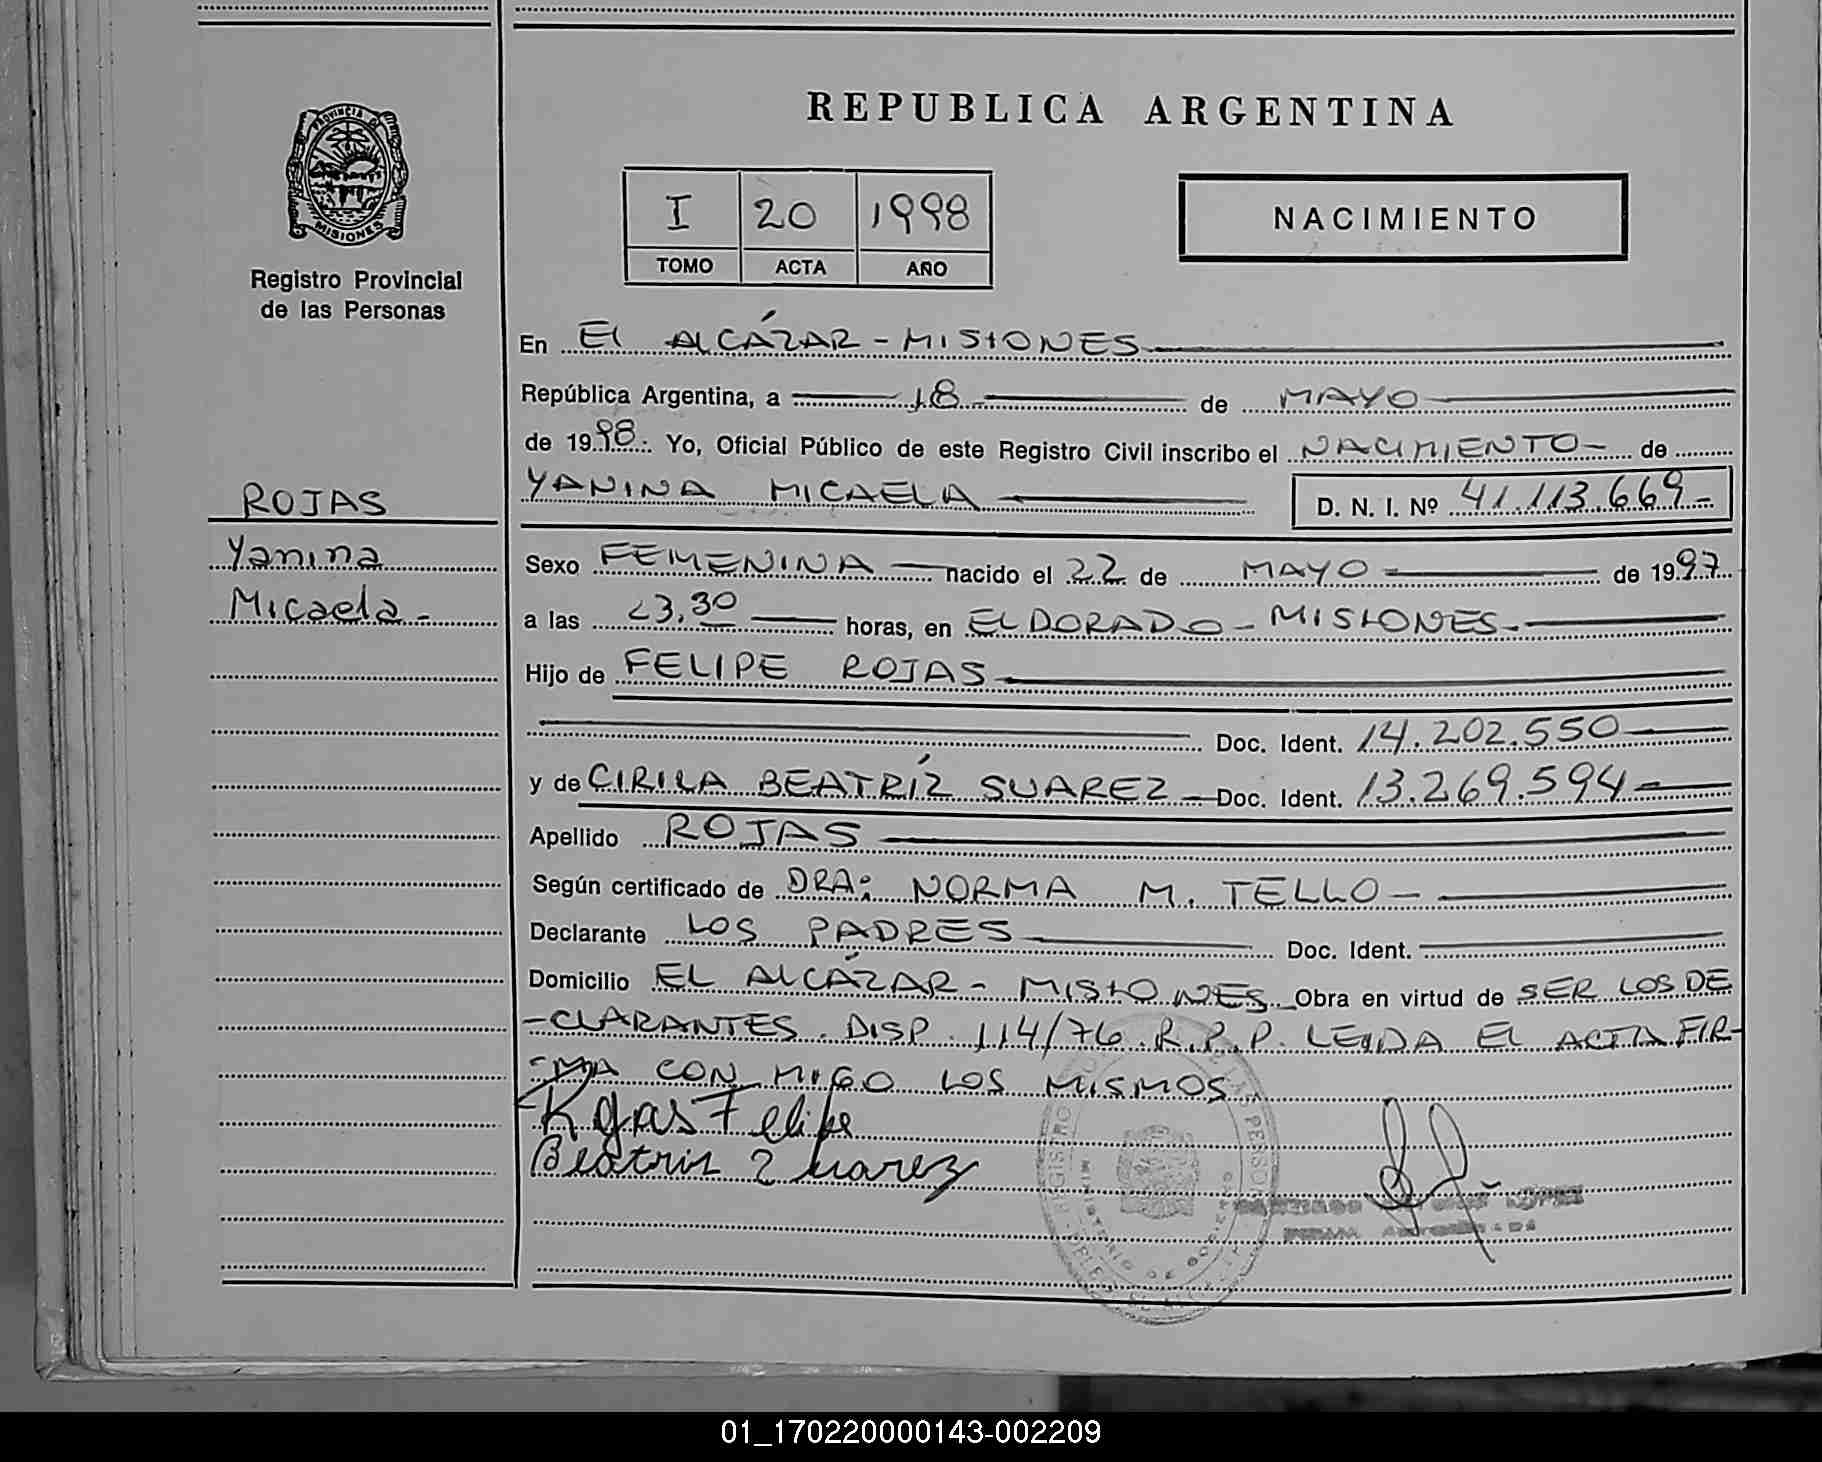 REPUBLICA ARGENTINA
PROVINCIA DE
MISIONES
Registro Provincial
de las Personas
I 20 1998
TOMO ACTA AÑO
NACIMIENTO
En El ALCÁZAR - MISIONES
República Argentina, a 18 de MAYO
de 1998. Yo, Oficial Público de este Registro Civil inscribo el NACIMIENTO - de
YANINA MICAELA D. N. I. Nº 41.113.669-
ROJAS
Yanina
Micaela -
Sexo FEMENINA nacido el 22 de MAYO de 1997
a las 23,30 horas, en ELDORADO - MISIONES.
Hijo de FELIPE ROJAS
Doc. Ident. 14.202.550
y de CIRILA BEATRÍZ SUAREZ Doc. Ident. 13.269.594
Apellido ROJAS
Según certificado de DRA: NORMA M. TELLO -
Declarante LOS PADRES Doc. Ident.
Domicilio EL ALCÁZAR - MISIONES. Obra en virtud de SER LOS DE
-CLARANTES. DISP. 114/76. R.P.P. LEIDA EL ACTA FIR-
-MA CON MIGO LOS MISMOS
Rojas Felipe
Beatriz Zuarez
01_170220000143-002209